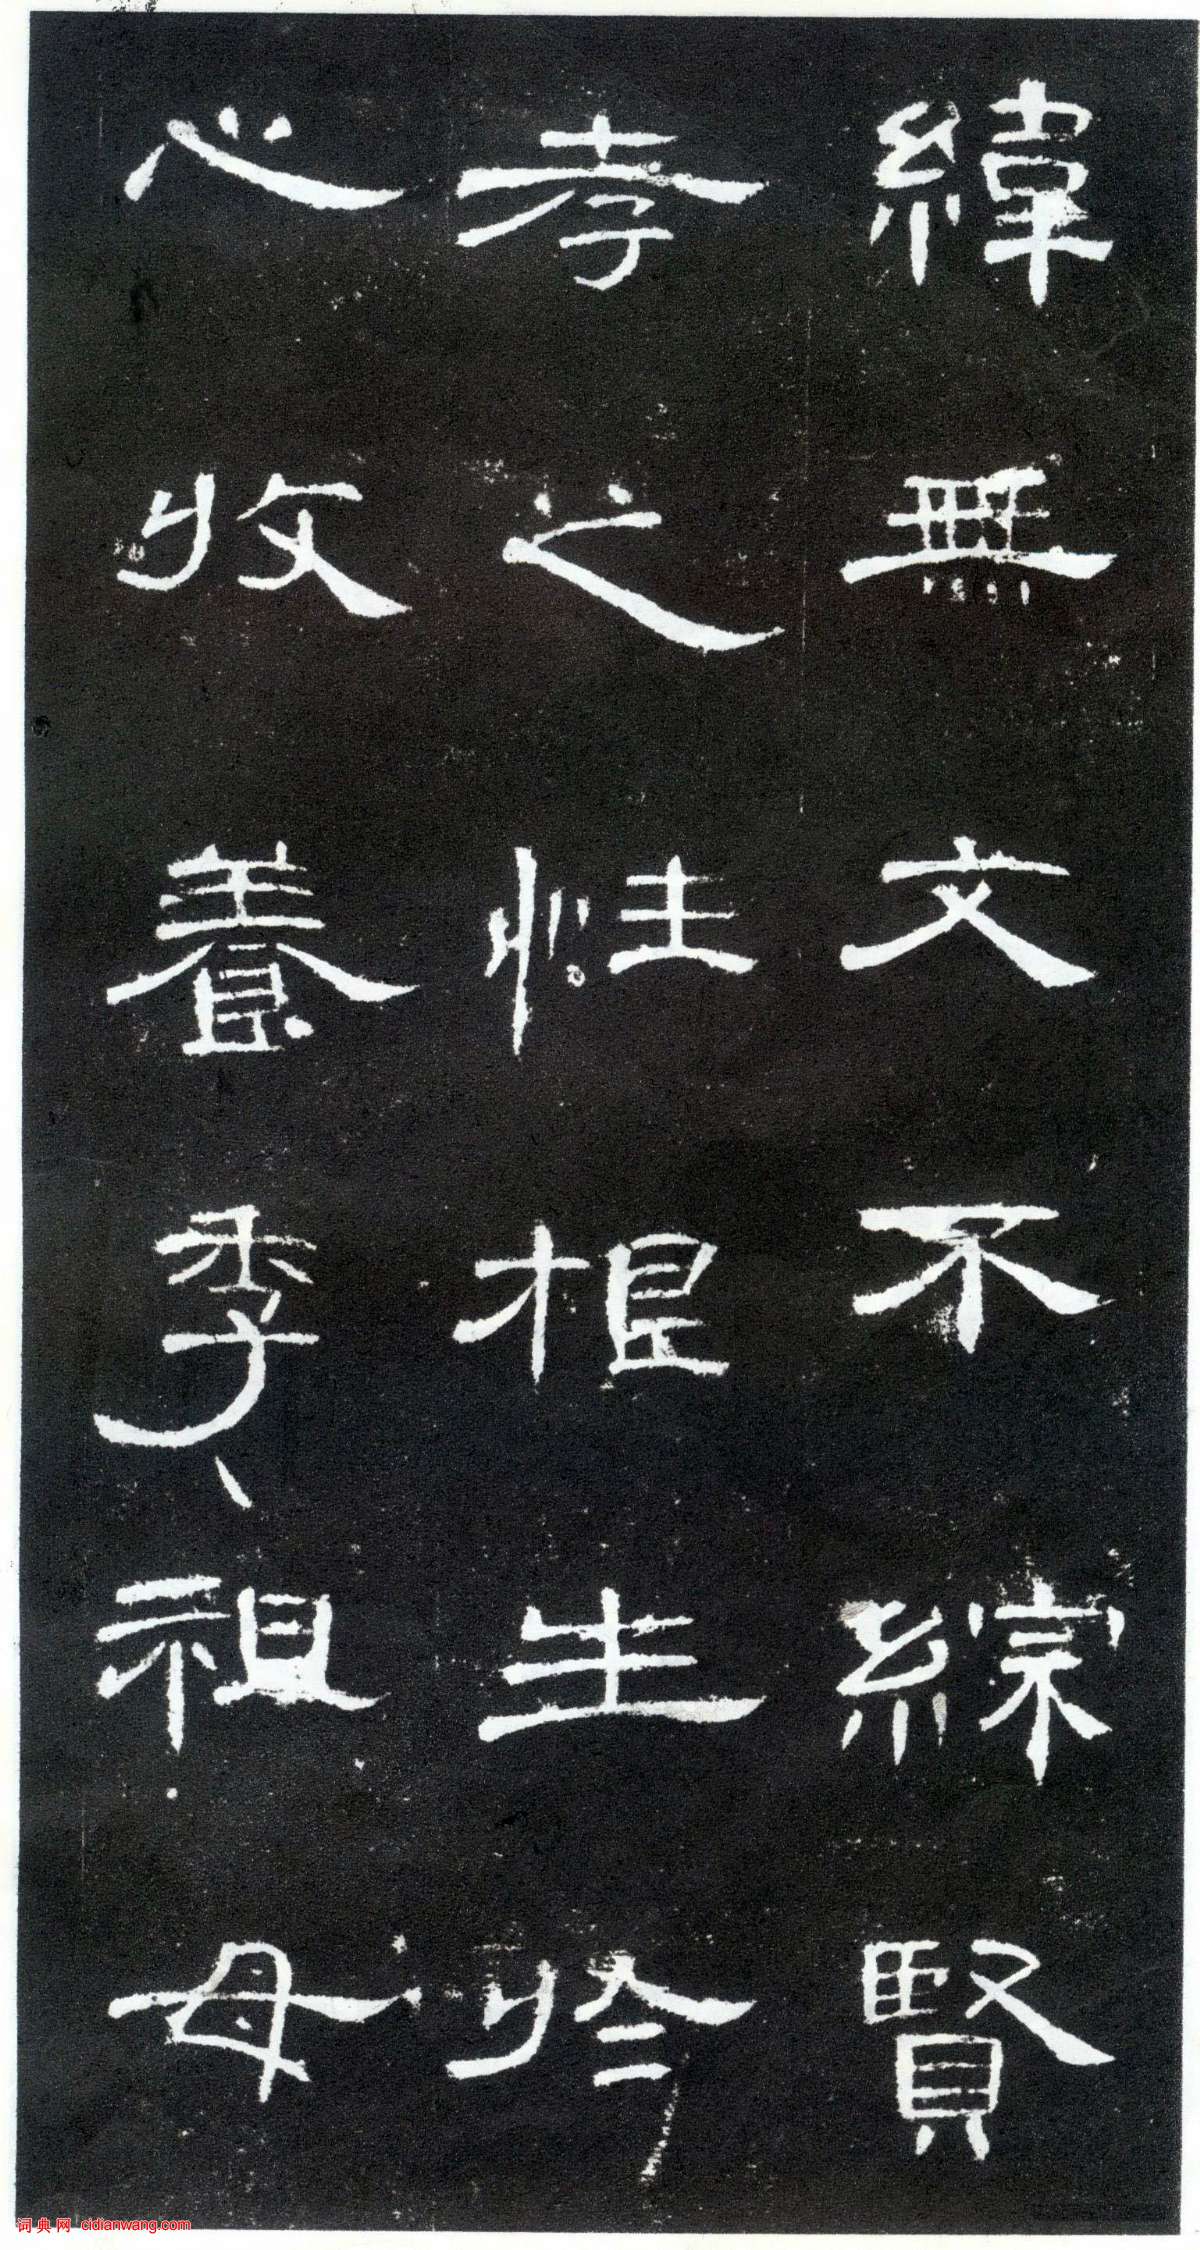 緯無文不綜賢
孝之性根生於
心收養季祖母
词典网 cidianwang.com